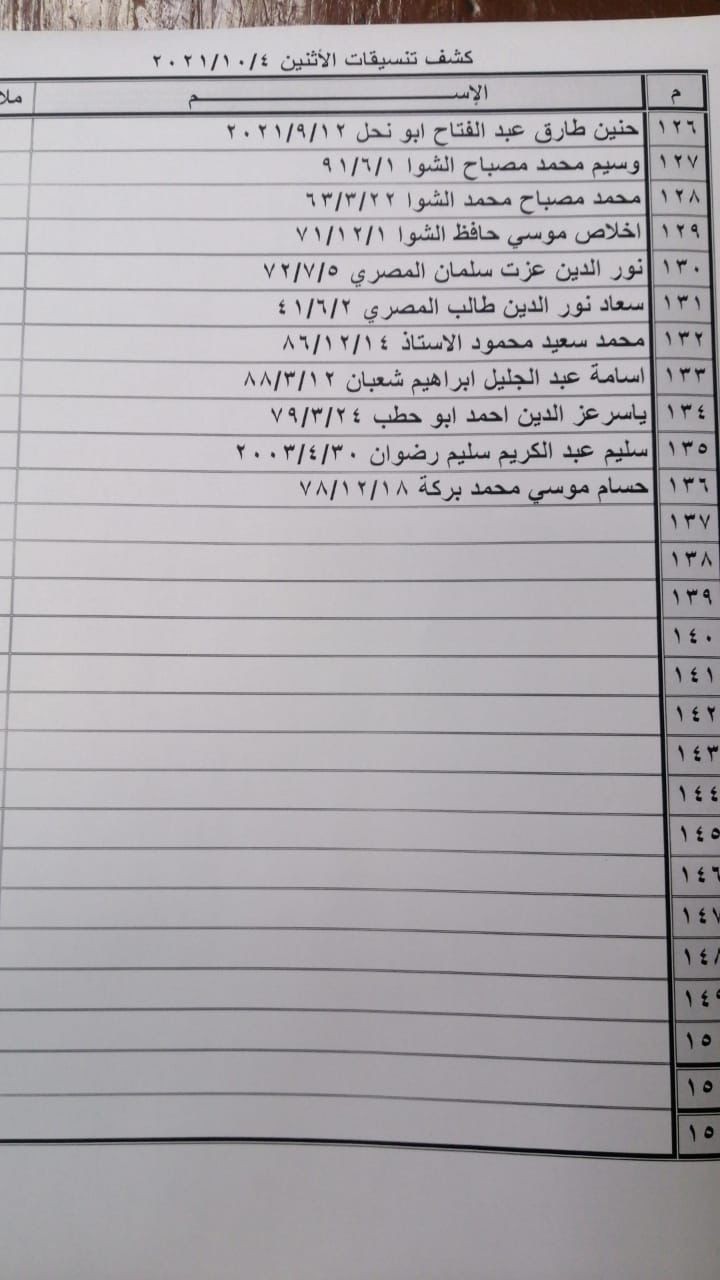 كشف تنسيقات الأثنين ٢٠٢١/١٠/٤
م الإســـــــــم ملا
١٢٦ حنين طارق عبد الفتاح ابو نحل ٢٠٢١/٩/١٢
١٢٧ وسيم محمد مصباح الشوا ٩١/٦/١
١٢٨ محمد مصباح محمد الشوا ٦٣/٣/٢٢
١٢٩ اخلاص موسي حافظ الشوا ٧١/١٢/١
١٣٠ نور الدين عزت سلمان المصري ٧٢/٧/٥
١٣١ سعاد نور الدين طالب المصري ٤١/٦/٢
١٣٢ محمد سعيد محمود الاستاذ ٨٦/١٢/١٤
١٣٣ اسامة عبد الجليل ابراهيم شعبان ٨٨/٣/١٢
١٣٤ ياسر عز الدين احمد ابو حطب ٧٩/٣/٢٤
١٣٥ سليم عبد الكريم سليم رضوان ٢٠٠٣/٤/٣٠
١٣٦ حسام موسي محمد بركة ٧٨/١٢/١٨
١٣٧
١٣٨
١٣٩
١٤٠
١٤١
١٤٢
١٤٣
١٤٤
١٤٥
١٤٦
١٤٧
١٤٨
١٤٩
١٥
١٥
١٥